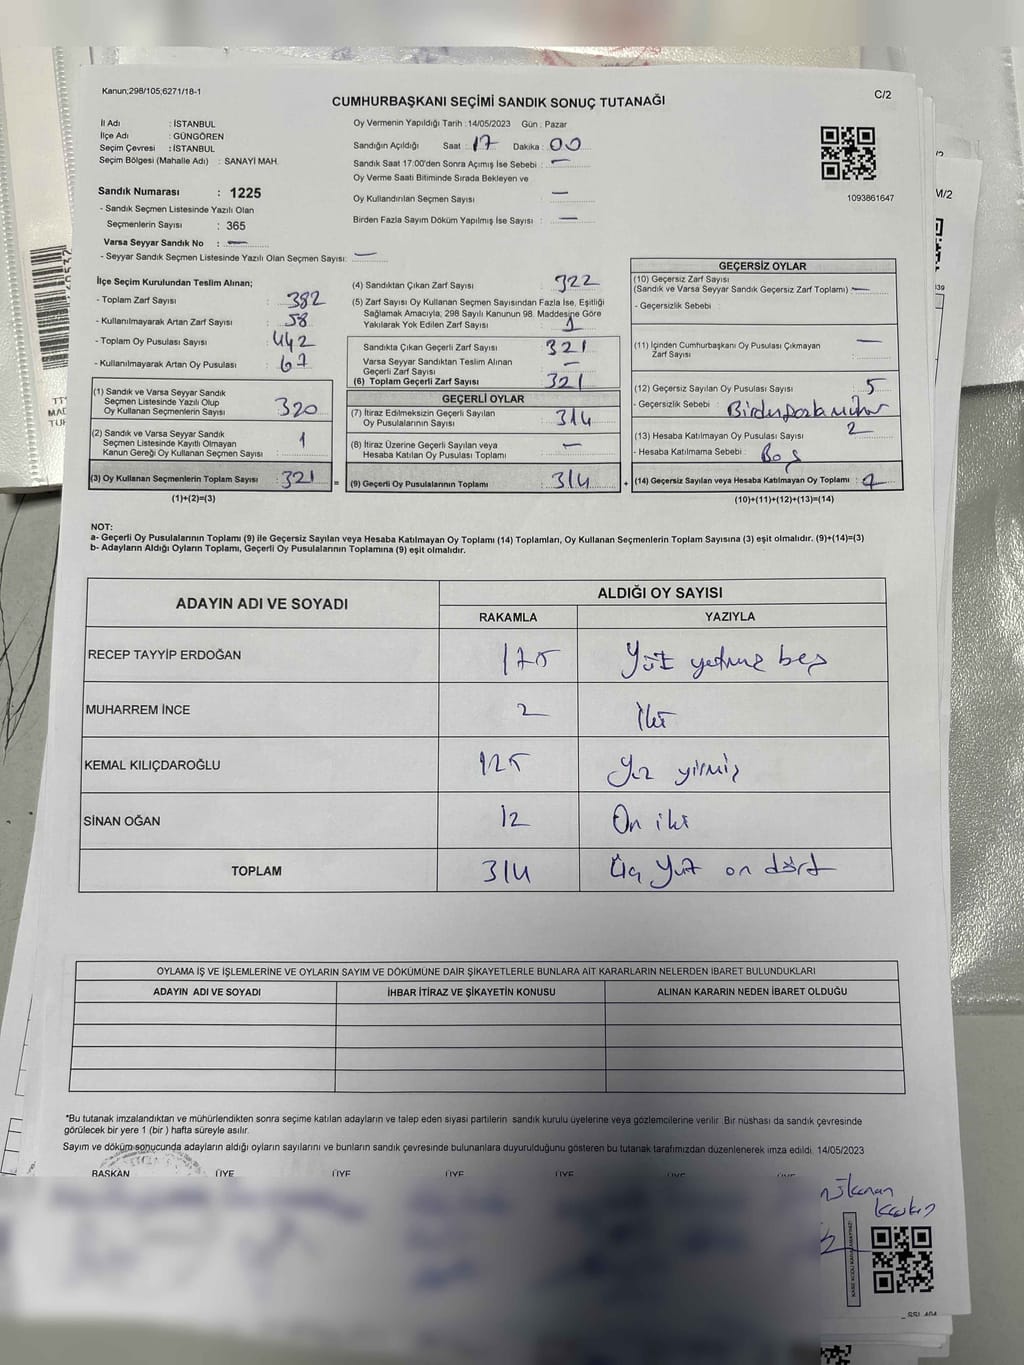 Kanun;298/105;6271/18-1
C/2
CUMHURBAŞKANI SEÇİMİ SANDIK SONUÇ TUTANAĞI
İl Adı : İSTANBUL
İlçe Adı : GÜNGÖREN
Seçim Çevresi : İSTANBUL
Seçim Bölgesi (Mahalle Adı) : SANAYİ MAH.
Sandık Numarası : 1225
- Sandık Seçmen Listesinde Yazılı Olan
Seçmenlerin Sayısı : 365
Varsa Seyyar Sandık No : —
- Seyyar Sandık Seçmen Listesinde Yazılı Olan Seçmen Sayısı: —
Oy Vermenin Yapıldığı Tarih : 14/05/2023 Gün : Pazar
Sandığın Açıldığı Saat : 17 Dakika : 00
Sandık Saat 17:00'den Sonra Açımış İse Sebebi : —
Oy Verme Saati Bitiminde Sırada Bekleyen ve
Oy Kullandırılan Seçmen Sayısı : —
Birden Fazla Sayım Döküm Yapılmış İse Sayısı : —
1093861647
İlçe Seçim Kurulundan Teslim Alınan;
- Toplam Zarf Sayısı : 382
- Kullanılmayarak Artan Zarf Sayısı : 58
- Toplam Oy Pusulası Sayısı : 442
- Kullanılmayarak Artan Oy Pusulası : 67
(1) Sandık ve Varsa Seyyar Sandık
Seçmen Listesinde Yazılı Olup
Oy Kullanan Seçmenlerin Sayısı : 320
(2) Sandık ve Varsa Seyyar Sandık
Seçmen Listesinde Kayıtlı Olmayan
Kanun Gereği Oy Kullanan Seçmen Sayısı : 1
(3) Oy Kullanan Seçmenlerin Toplam Sayısı : 321
(1)+(2)=(3)
(4) Sandıktan Çıkan Zarf Sayısı : 322
(5) Zarf Sayısı Oy Kullanan Seçmen Sayısından Fazla İse, Eşitliği
Sağlamak Amacıyla; 298 Sayılı Kanunun 98. Maddesine Göre
Yakılarak Yok Edilen Zarf Sayısı : 1
Sandıkta Çıkan Geçerli Zarf Sayısı : 321
Varsa Seyyar Sandıktan Teslim Alınan
Geçerli Zarf Sayısı : —
(6) Toplam Geçerli Zarf Sayısı : 321
GEÇERLİ OYLAR
(7) İtiraz Edilmeksizin Geçerli Sayılan
Oy Pusulalarının Sayısı : 314
(8) İtiraz Üzerine Geçerli Sayılan veya
Hesaba Katılan Oy Pusulası Toplamı : —
= (9) Geçerli Oy Pusulalarının Toplamı : 314 +
GEÇERSİZ OYLAR
(10) Geçersiz Zarf Sayısı
(Sandık ve Varsa Seyyar Sandık Geçersiz Zarf Toplamı) : —
- Geçersizlik Sebebi :
(11) İçinden Cumhurbaşkanı Oy Pusulası Çıkmayan
Zarf Sayısı : —
(12) Geçersiz Sayılan Oy Pusulası Sayısı : 5
- Geçersizlik Sebebi : Birden fazla mühür
(13) Hesaba Katılmayan Oy Pusulası Sayısı : 2
- Hesaba Katılmama Sebebi : Boş
(14) Geçersiz Sayılan veya Hesaba Katılmayan Oy Toplamı : 7
(10)+(11)+(12)+(13)=(14)
NOT:
a- Geçerli Oy Pusulalarının Toplamı (9) ile Geçersiz Sayılan veya Hesaba Katılmayan Oy Toplamı (14) Toplamları, Oy Kullanan Seçmenlerin Toplam Sayısına (3) eşit olmalıdır. (9)+(14)=(3)
b- Adayların Aldığı Oyların Toplamı, Geçerli Oy Pusulalarının Toplamına (9) eşit olmalıdır.
ADAYIN ADI VE SOYADI
ALDIĞI OY SAYISI
RAKAMLA YAZIYLA
RECEP TAYYİP ERDOĞAN 175 Yüz yetmiş beş
MUHARREM İNCE 2 İki
KEMAL KILIÇDAROĞLU 125 Yüz yirmi
SİNAN OĞAN 12 On iki
TOPLAM 314 Üç Yüz on dört
OYLAMA İŞ VE İŞLEMLERİNE VE OYLARIN SAYIM VE DÖKÜMÜNE DAİR ŞİKAYETLERLE BUNLARA AİT KARARLARIN NELERDEN İBARET BULUNDUKLARI
ADAYIN ADI VE SOYADI İHBAR İTİRAZ VE ŞİKAYETİN KONUSU ALINAN KARARIN NEDEN İBARET OLDUĞU
*Bu tutanak imzalandıktan ve mühürlendikten sonra seçime katılan adayların ve talep eden siyasi partilerin sandık kurulu üyelerine veya gözlemcilerine verilir. Bir nüshası da sandık çevresinde
görülecek bir yere 1 (bir ) hafta süreyle asılır.
Sayım ve döküm sonucunda adayların aldığı oyların sayılarını ve bunların sandık çevresinde bulunanlara duyurulduğunu gösteren bu tutanak tarafımızdan düzenlenerek imza edildi. 14/05/2023
BAŞKAN ÜYE ÜYE ÜYE ÜYE ÜYE ÜYE
M/2